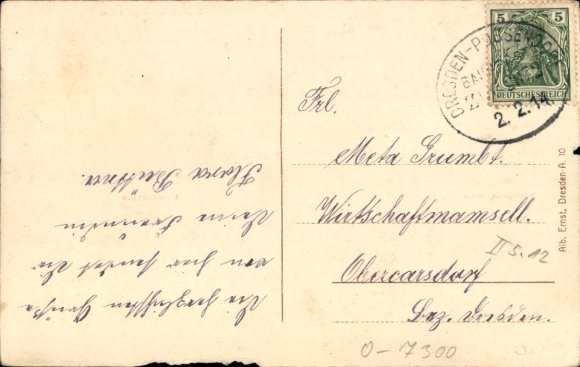 5 5
DEUTSCHES REICH
DRESDEN-POSSENDORF
BAHNPOST
2. 2. 14.
Frl.
Meta Grumbt.
Wirtschaftmamsell.
Obercarsdorf
Bez. Dresden.
II 5.12
0-7300
Alb. Ernst, Dresden-A. 10
Die herzlichsten Grüße
von hier sendet Dir
Deine Freundin
Flora Büttner.